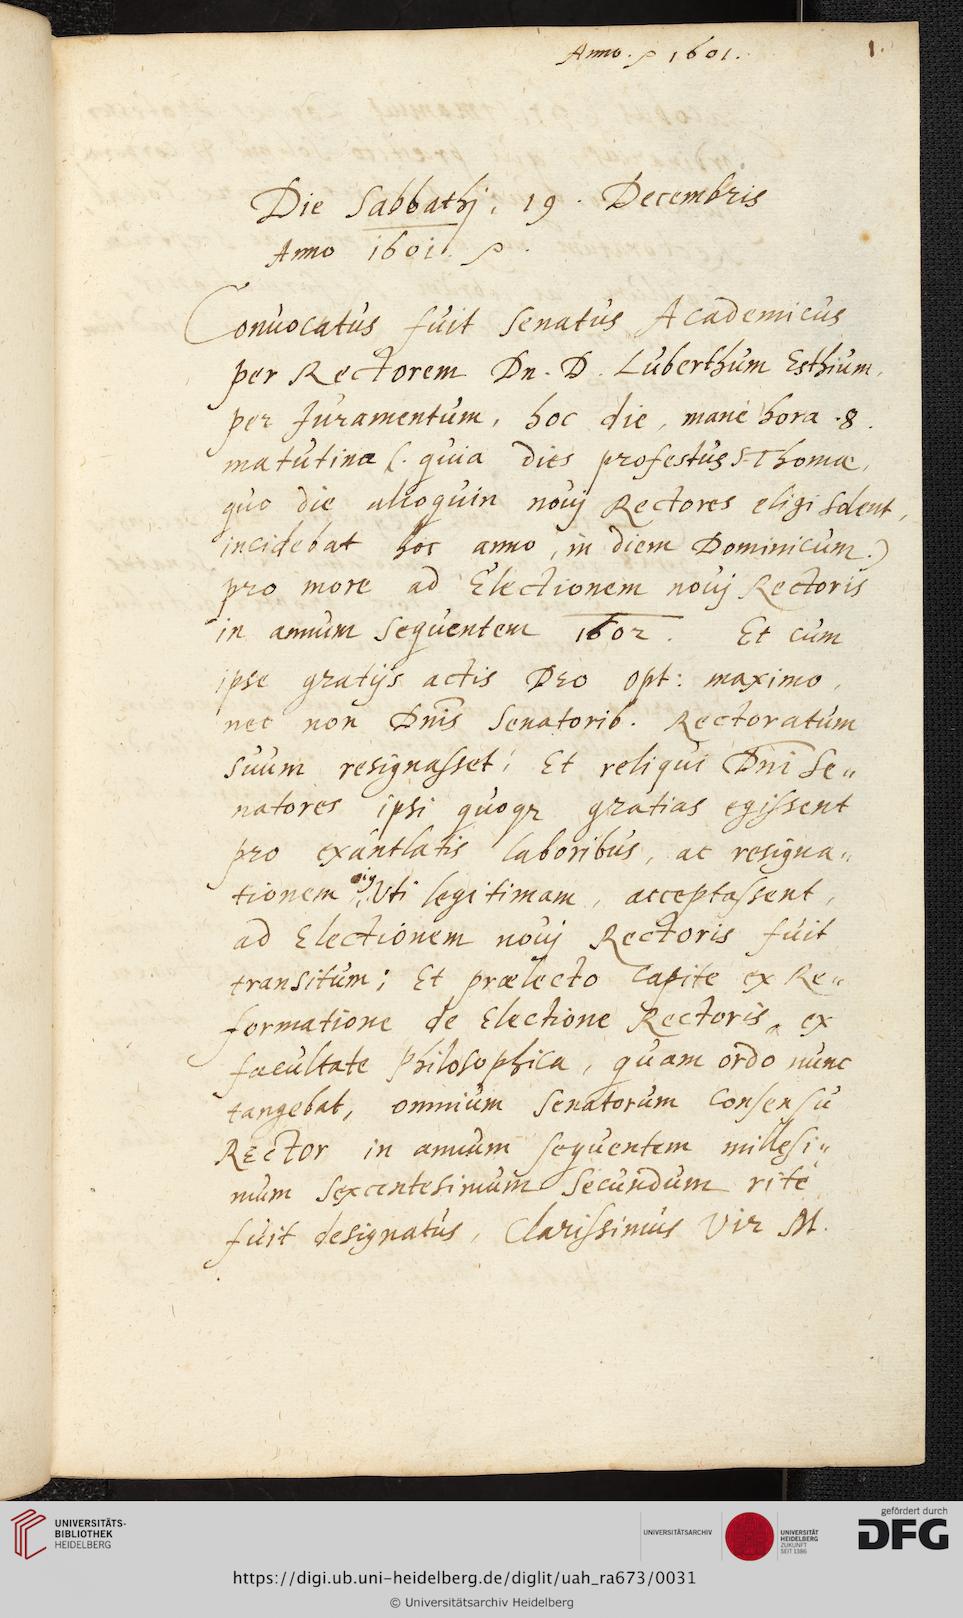 Anno . 1601.
1.
Die Sabbathj, 19. Decembris
Anno 1601.
Conuocatus fuit Senatus Academicus
per Rectorem Dn. D. Luberthum Esthium,
per Juramentum, hoc die, mane hora .8.
matutina (. quia dies profestus S. Thomæ,
quo die alioquin nouj Rectores eligi solent,
incidebat hoc anno, in diem Dominicum.)
pro more ad Electionem nouj Rectoris
in annum sequentem 1602. Et cum
ipse gratijs actis Deo opt: maximo,
nec non Dnis Senatorib. Rectoratum
suum resignasset; Et reliqui Dni Se„
natores ipsi quoq gratias egissent
pro exantlatis laboribus, ac resigna„
tionem eig Uti legitimam, acceptassent,
ad Electionem nouj Rectoris fuit
transitum; Et prælecto Capite ex Re„
formatione de Electione Rectoris, ex
facultate Philosophica, quam ordo nunc
tangebat, omnium Senatorum Consensu
Rector in annum sequentem millesi„
mum sexcentesimum secundum rite
fuit designatus, Clarissimus Vir M.
UNIVERSITÄTS-
BIBLIOTHEK
HEIDELBERG
UNIVERSITÄTSARCHIV
UNIVERSITÄT
HEIDELBERG
ZUKUNFT
SEIT 1386
gefördert durch
DFG
https://digi.ub.uni-heidelberg.de/diglit/uah_ra673/0031
© Universitätsarchiv Heidelberg